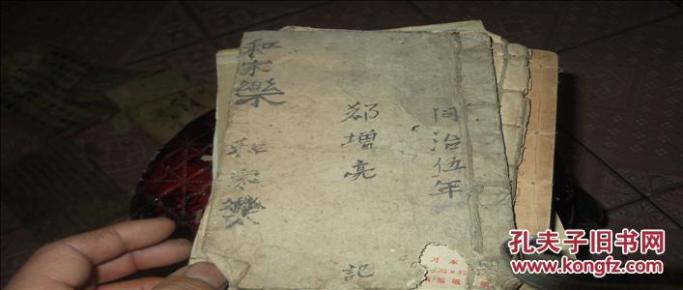 同治伍年
鄒增亮
記
和家樂
和家樂
孔夫子旧书网
www.kongfz.com